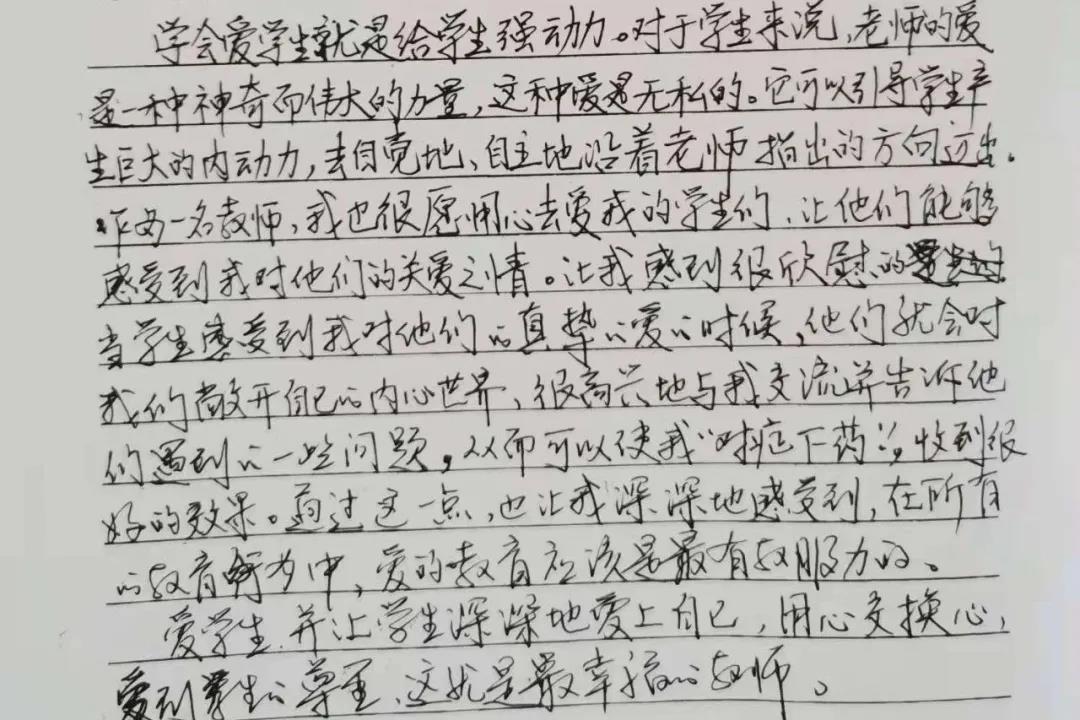 学会爱学生就是给学生强动力。对于学生来说，老师的爱
是一种神奇而伟大的力量，这种爱是无私的。它可以引导学生产
生巨大的内动力，去自觉地、自主地沿着老师指出的方向迈出。
作为一名教师，我也很愿用心去爱我的学生们，让他们能够
感受到我对他们的关爱之情。让我感到很欣慰的
当学生感受到我对他们的真挚的爱的时候，他们就会对
我们敞开自己的内心世界，很高兴地与我交流并告诉他
们遇到的一些问题，从而可以使我“对症下药”，收到很
好的效果。通过这一点，也让我深深地感受到，在所有
的教育行为中，爱的教育应该是最有效服力的。
爱学生，并让学生深深地爱上自己，用心交换心，
受到学生的尊重，这就是最幸福的教师。